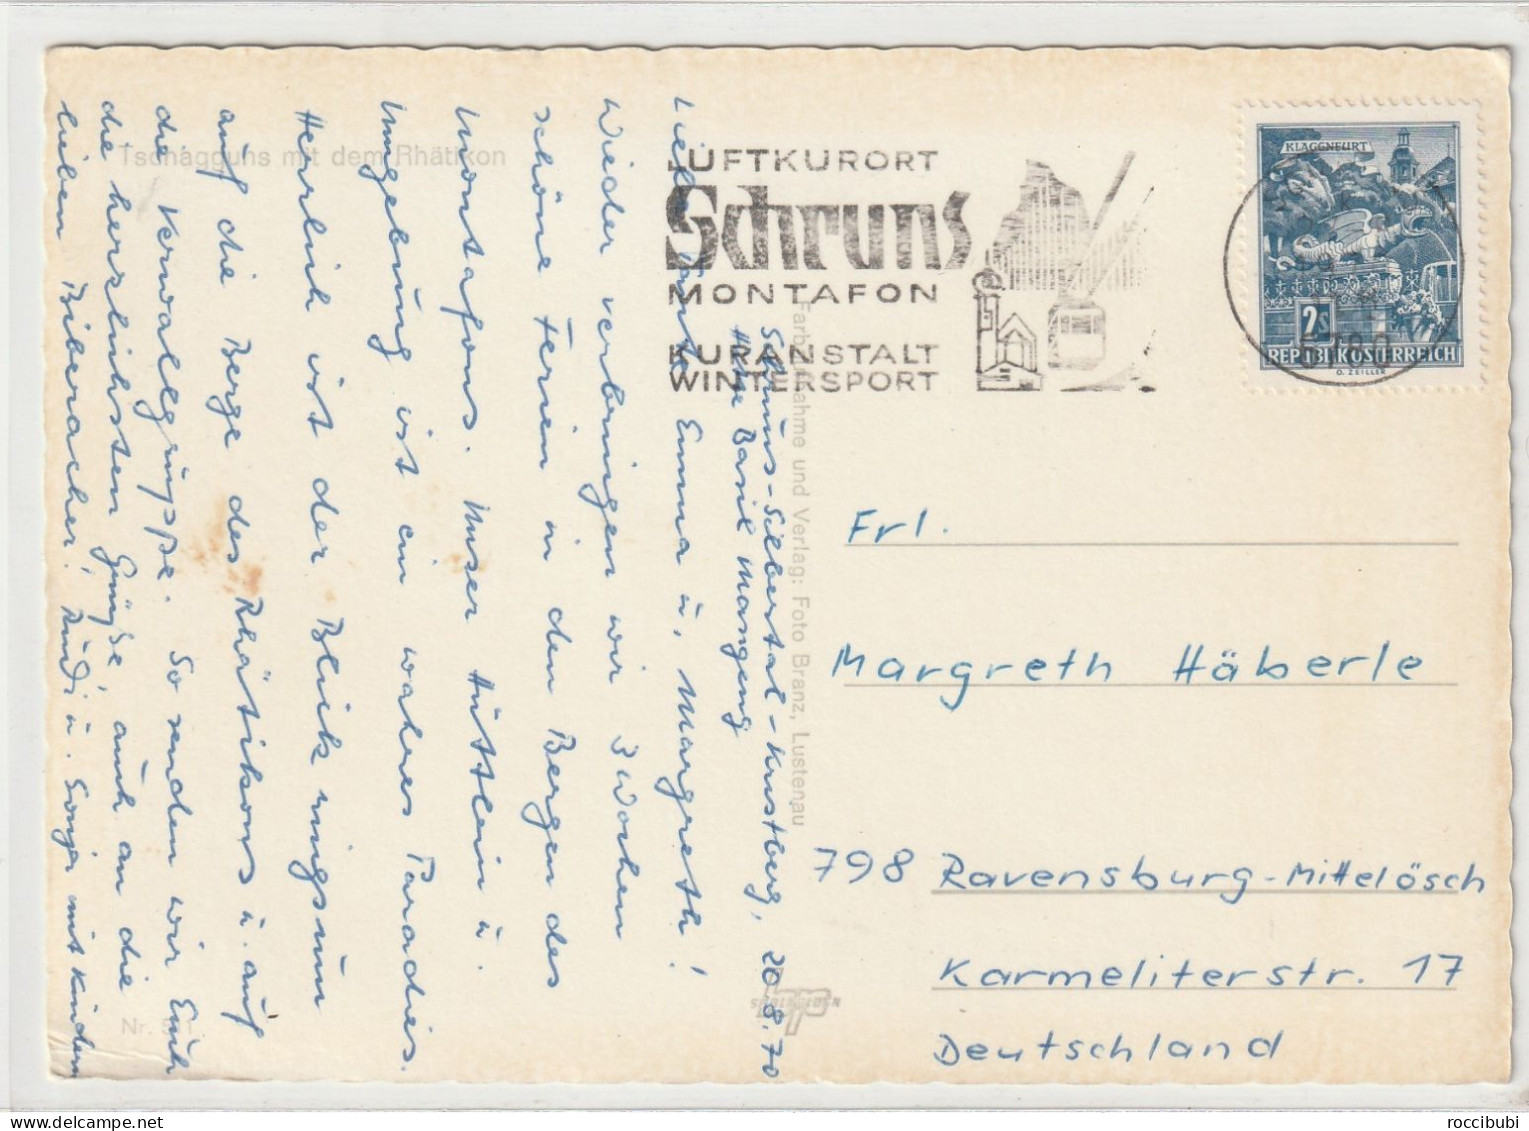 Tschagguns mit dem Rhätikon
LUFTKURORT
Schruns
MONTAFON
KURANSTALT
WINTERSPORT
KLAGENFURT
2S
REPUBLIK ÖSTERREICH
O. ZEILLER
6780
Schruns-Silbertal-Kristberg, 20.8.70
Hütte Basil Mangeng
Lieb Tante Emma u. Margreth!
Wieder verbringen wir 3 Wochen
schöne Ferien in den Bergen des
Montafons. Unser Hüttlein u.
Umgebung ist ein wahres Paradies.
Herrlich ist der Blick ringsum
auf die Berge des Rhätikons u. auf
die Verwallgruppe. So senden wir Euch
die herzlichsten Grüße, auch an die
lieben Biberacher! Rudi u. Sonja mit Kindern
Farbaufnahme und Verlag: Foto Branz, Lustenau
Nr.
Frl.
Margreth Häberle
798 Ravensburg-Mittelösch
Karmeliterstr. 17
Deutschland
roccibubi